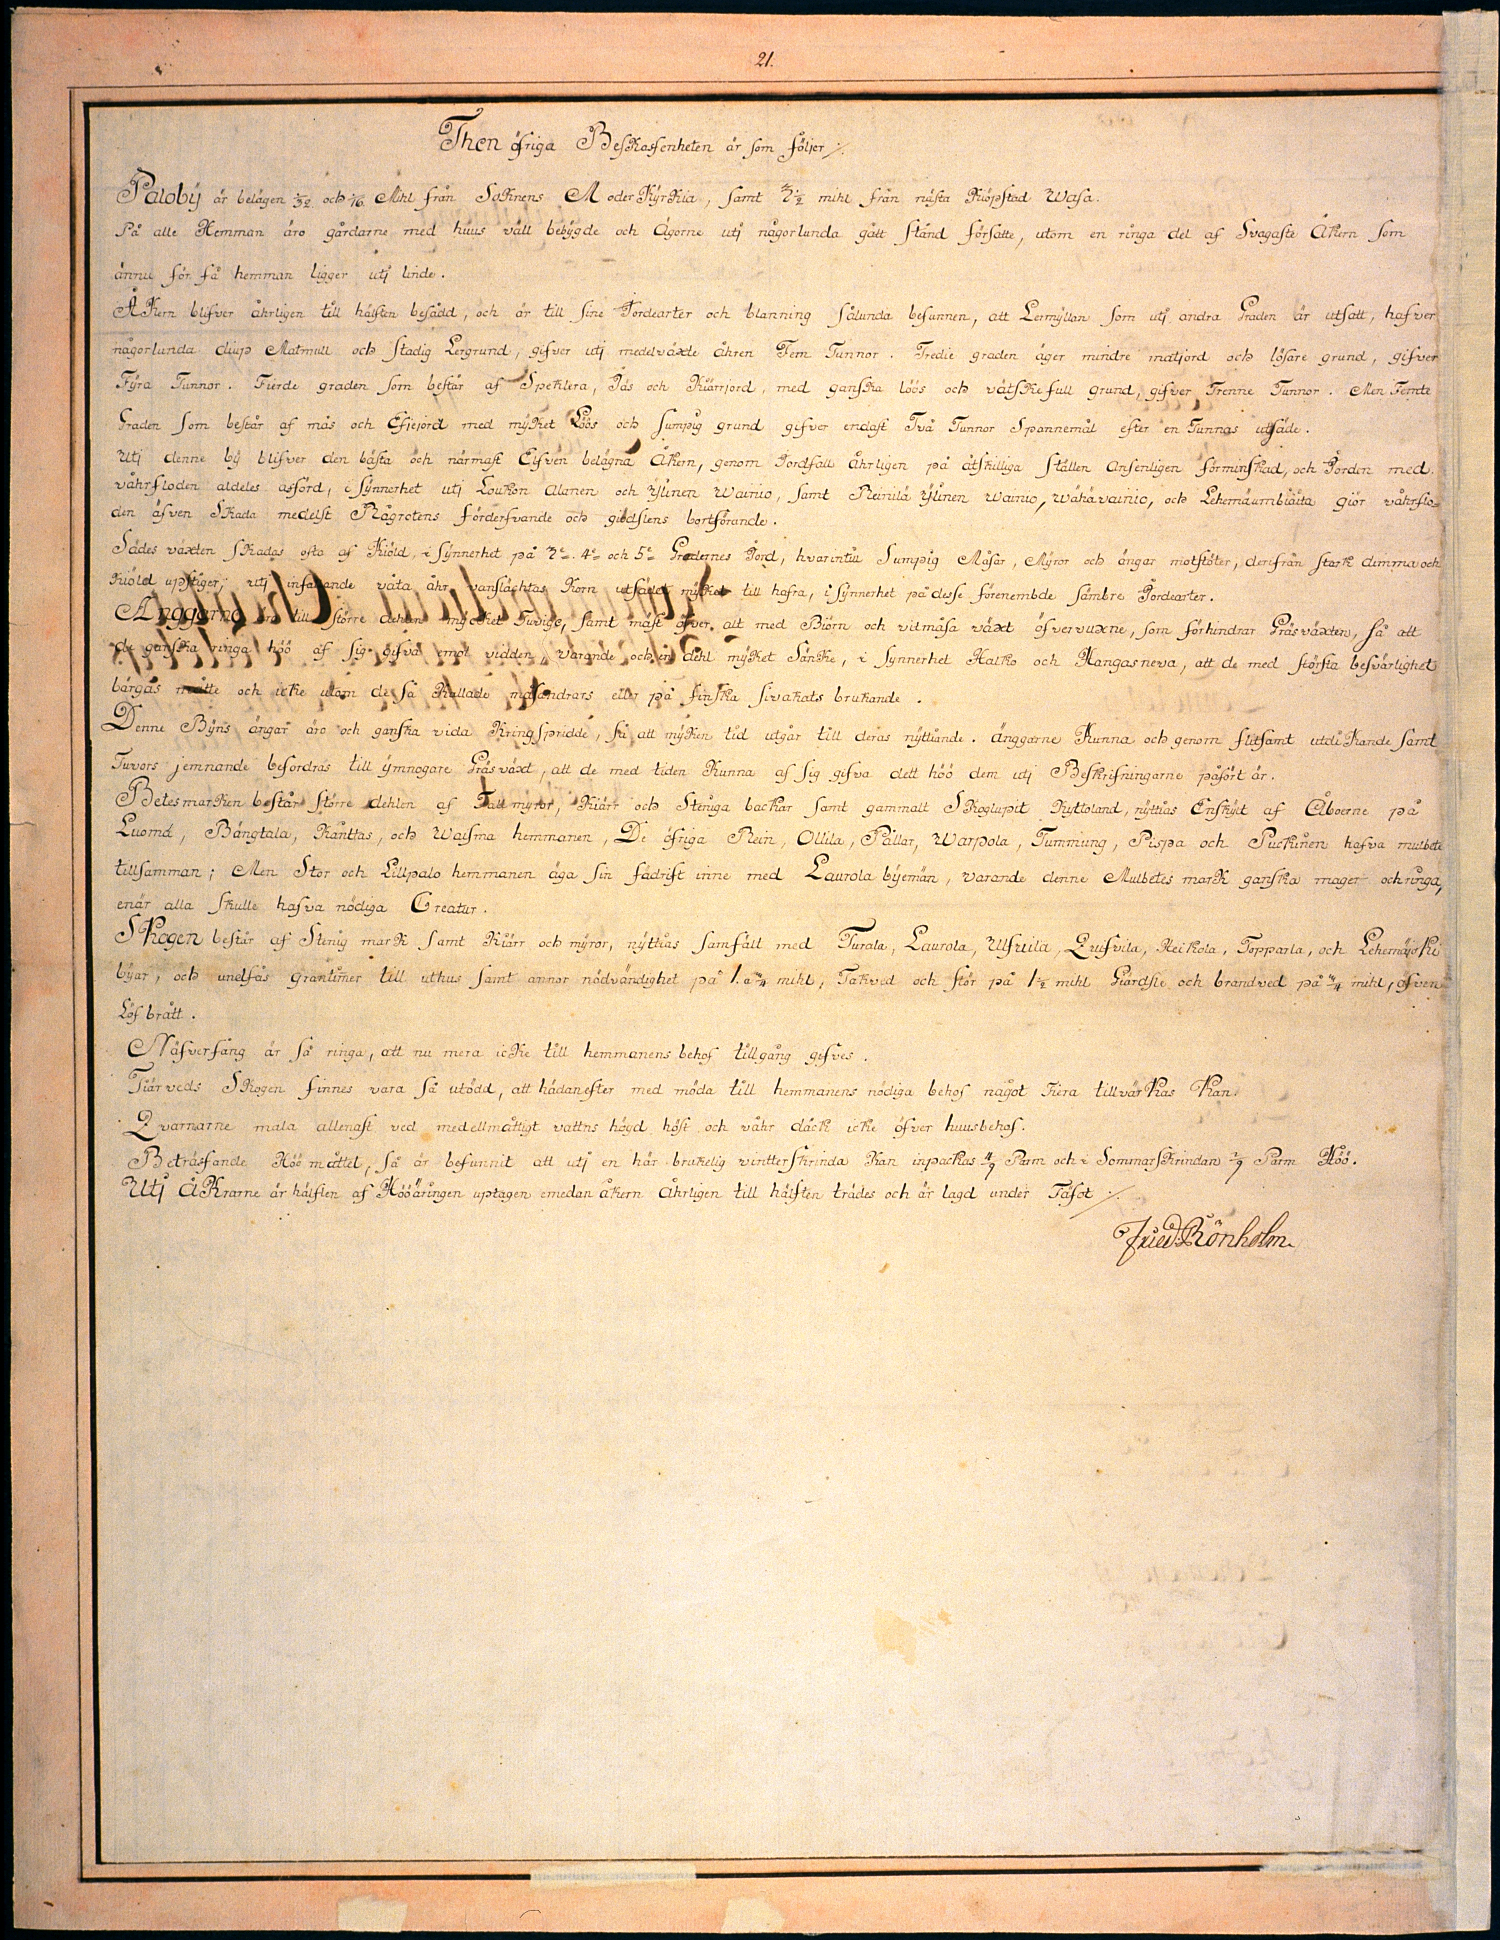 21.
Then öfriga Beskaffenheten är som följer ./.
Paloby är belägen 1/32 och 1/16 Mihl från Soknens Moder Kÿrkia, samt 7 1/2 mihl från nästa Kiöpstad Wasa.
På alle Hemman äro gårdarne med huus väll bebÿgde och Ägorne utj någorlunda gått stånd försatte, utom en ringa del af Svagaste Åkern som
ännu för få hemman ligger utj linde.
ÅKern blifver åhrligen till hälften besådd, och är till sine Jordearter och blanning sålunda befunnen, att Lermÿllan som utj andra Graden är utsatt, hafver
någorlunda diup Matmull och stadig Lergrund, gifver utj medelväxte åhren Fem Tunnor. Tredie graden äger mindre matjord och lösare grund, gifver
Fÿra Tunnor. Fierde graden som består af Speklera, Jäs och Kiärrjord, med ganska löös och vätskefull grund, gifver Trenne Tunnor. Men Femte
Graden som består af mås och Efjejord med mÿket Löös och sumpig grund gifver endast Två Tunnor Spannemål efter en Tunnas utsäde.
Utj denne bÿ blifver den bästa och närmast Elfven belägna Åkern, genom Jordfall åhrligen på åtskilliga ställen ansenligen förminskad, och Jorden med
våhrfloden aldeles afförd, i sÿnnerhet utj Loukon alanen och Ylinen Wainio, samt Reinilä Ylinen wainio, wähävainio, och giör våhrflo=
den äfven Skada medelst Rågrotens förderfvande och giödslens bortförande.
Sädes växten skadas ofta af Kiöld, i sÿnnerhet på 3e. 4e och 5e Gradernes Jord, hvarintill Sumpig Måsar, Mÿror och ängar motstöter, derifrån stark dimma och
Kiöld upstiger; utj infallande våta åhr vanslächtas Korn utsädet mÿket till hafra, i sÿnnerhet på desse förenembde sämbre Jordearter.
Änggarne äro till större dehlen mÿcket Tuvige, samt mäst öfver alt med Biörn och vidmåsa växt öfvervuxne, som förhindrar Gräsväxten, så att
de ganska ringa höö af sig gifva emot vidden, varande och en dehl mÿket Sänke, i sÿnnerhet Halko och Kangasneva, att de med största besvärlighet
bärgas måtte och icke utom de så kallade måsandrars eller på finska sivakats brukande.
Denne Bÿns ängar äro och ganska vida Kringspridde, så att mÿken tid utgår till deras nÿttiande. Änggarne Kunna och genom flitsamt utdiKande samt
Tuvors jemnande befordras till ÿmnogare Gräsväxt, att de med tiden Kunna af sig gifva dett höö dem utj Beskrifningarne påfört är.
Betesmarken består större dehlen af Tallmÿror, Kiärr och Steniga backar samt gammalt Skoglupit Kÿttoland, nÿttias Enskÿlt af Åboerne på
Luoma, Bångtala, Känttas, och Waisma hemmanen, De öfriga Rein, Ollila, Pållar, Warpola, Tummung, Pispa och Puckinen hafva mulbete
tillsamman; Men Stor och Lillpalo hemmanen äga sin fädrift inne med Laurola bÿemän, varande denne Mulbetes mark ganska mager och ringa,
enär alla skulle hafva nödiga Creatur.
Skogen består af Stenig mark samt Kiärr och mÿror, nÿttias samfält med Turala, Laurola, Ulfvila, Qvifvila, Heikola, Topparla, och LehemäjoKi
bÿar, och undfås gråntimer till uthus samt annor nödvändighet på 1. a 3/4 mihl, Takved och stör på 1 1/2 mihl Giärdsle och brandved på 3/4 mihl, äfven
Löfbrått.
Näfverfång är så ringa, att nu mera icke till hemmanens behof tillgång gifves.
Tiärveds Skogen finnes vara så utödd, att hädanefter med möda till hemmanens nödiga behof något Tiera tillvärkas Kan.
Qvarnarne mala allenast ved medellmåttigt vattns höÿd höst och våhr däck icke öfver huusbehof.
Beträffande Höömåttet, så är befunnit att utj en här brukelig vintterskrinda Kan inpackas 4/9 Parm och i Sommarskrindan 2/9 Parm Höö.
Utj ÅKrarne är hälften af Hööäringen uptagen emedan åkern Åhrligen till hälften trädes och är lagd under Täfot ./.
Fried: Rönholm.